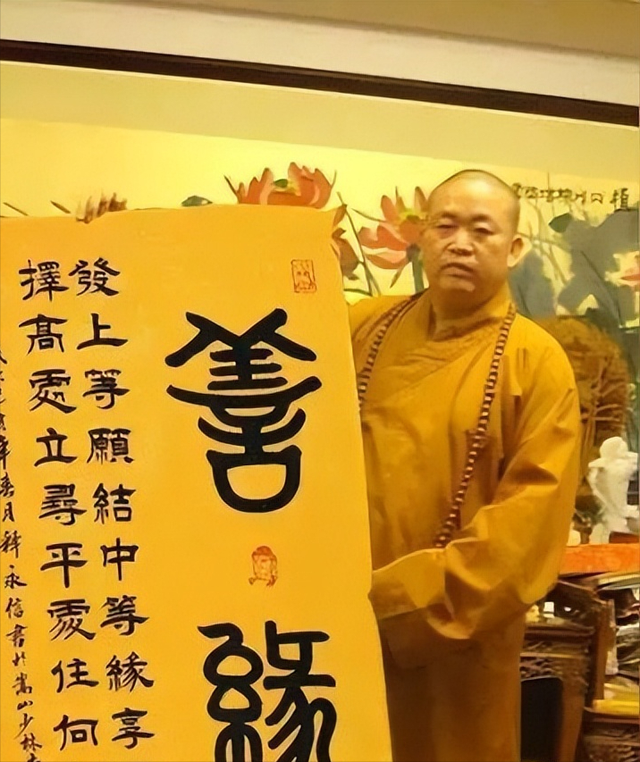 善緣
發上等願結中等緣享
擇高處立尋平處住向
年春月釋永信書於嵩山少林